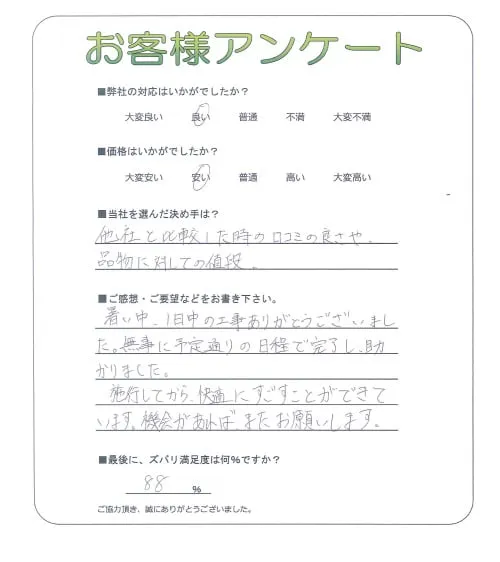 お客様アンケート
■弊社の対応はいかがでしたか？
大変良い 良い 普通 不満 大変不満
■価格はいかがでしたか？
大変安い 安い 普通 高い 大変高い
■当社を選んだ決め手は？
他社と比較した時の口コミの良さや、
品物に対しての値段。
■ご感想・ご要望などをお書き下さい。
暑い中、1日中の工事ありがとうございまし
た。無事に予定通りの日程で完了し、助
かりました。
施行してから、快適にすごすことができて
います。機会があればまたお願いします。
■最後に、ズバリ満足度は何%ですか？
88 %
ご協力頂き、誠にありがとうございました。